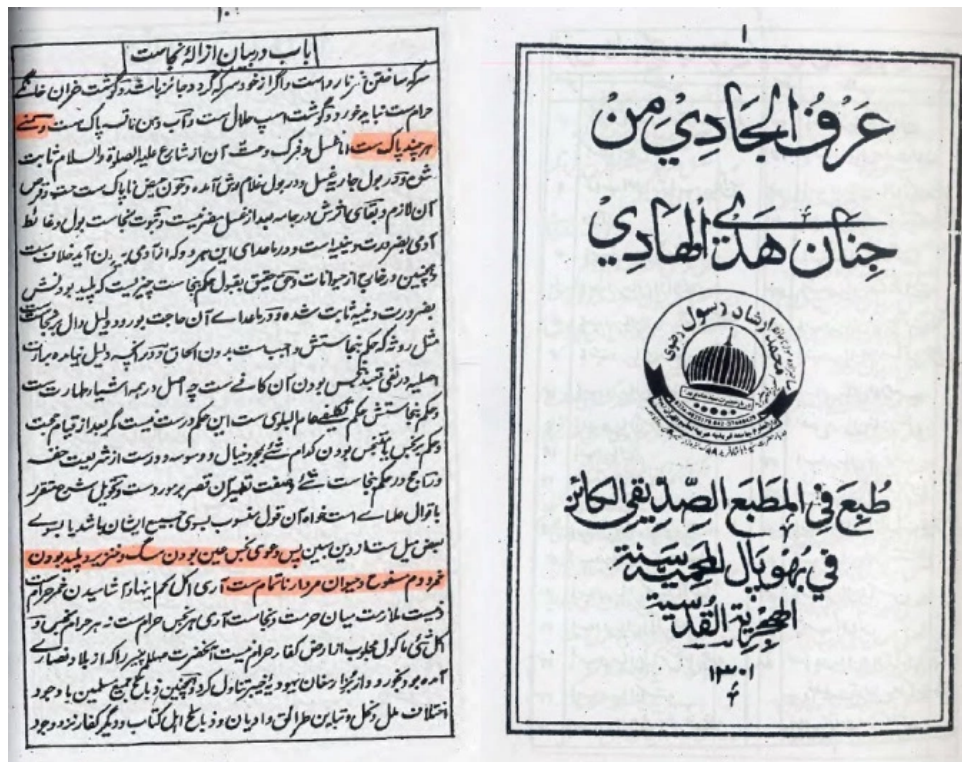 عَرْفُ الجَادِيْ مِنْ
جِنَانِ هَدْيِ الهَادِيْ
طُبِعَ فِي المَطبَعِ الصِّدِّيْقِي الكَائِنِ
فِي بُهُوپَالِ المَحْمِيَّةِ سَنَةَ
الهِجْرِيَّةِ القُدْسِيَّةِ
١٣٠١
١٠
باب در بیان ازالهٔ نجاست
سرکه ساختن خمر نارواست و اگر از خود سرکه گردد جائز باشد و گوشت خران خانگی
حرام ست نباید خورد و گوشت اسپ حلال ست و آب دهن ناقه پاک ست و منی
هر چند پاک ست اما غسل و فرک و حت آن از شارع علیه الصلوة والسلام ثابت
شده و در بول جاریه غسل و در بول غلام رش آمده و خون حیض ناپاک ست و قرص
آن لازم و بقای اثرش در جامه بعد از غسل مضر نیست و ثبوت نجاست بول و غائط
آدمی بضرورت دینیه است و در ماعدای این هر دو که از آدمی بیرون آید خلاف ست
و همچنین در خارج از حیوانات و حق حقیق بقبول حکم نجاست چیزیست که پلید بودنش
بضرورت دینیه ثابت شده و در ماعداے آن حاجت بورود دلیل دال بر نجاست
مثل روثه که حکم نجاستش واجب ست بدون الحاق و در آنچه دلیل نیامده براءت
اصلیه در نفی تعبد بنجس بودن آن کافی ست چه اصل در همه اشیا طهارت ست
و حکم بنجاستش حکم تکلیفی عام البلوی ست این حکم درست نیست مگر بعد از قیام حجت
و حکم بنجس یا متنجس بودن کدام شے بمجرد خیال و وسوسه دور ست از شریعت حقه
و راجح در حکم نجاست شے و صفت تطهیر آن قصر بر مورد ست و تحویل شرع متقرر
باقوال علماے است خواه آن قول منسوب بسوی جمیع ایشان باشد یا بسوے
بعض میل ست از دین مبین پس دعوی نجس عین بودن سگ و خنزیر و پلید بودن
خمر و دم مسفوح و حیوان مردار ناتمام ست آری اکل لحم اینها و آشامیدن خمر حرام ست
نیست ملازمت میان حرمت و نجاست آری هر نجس حرام ست نه هر حرام نجس و
اکل شئی ماکول مجلوب از ارض کفار حرام نیست آنحضرت صلعم پنیر را که از بلاد نصارے
آمده بود بخورد و از بزار مغان یهود خیبر تناول کرد و همچنین ذبائح جمیع مسلمین با وجود
اختلاف ملل و نحل و تباین طرائق و ادیان و ذبائح اهل کتاب و دیگر کفار نزد وجود